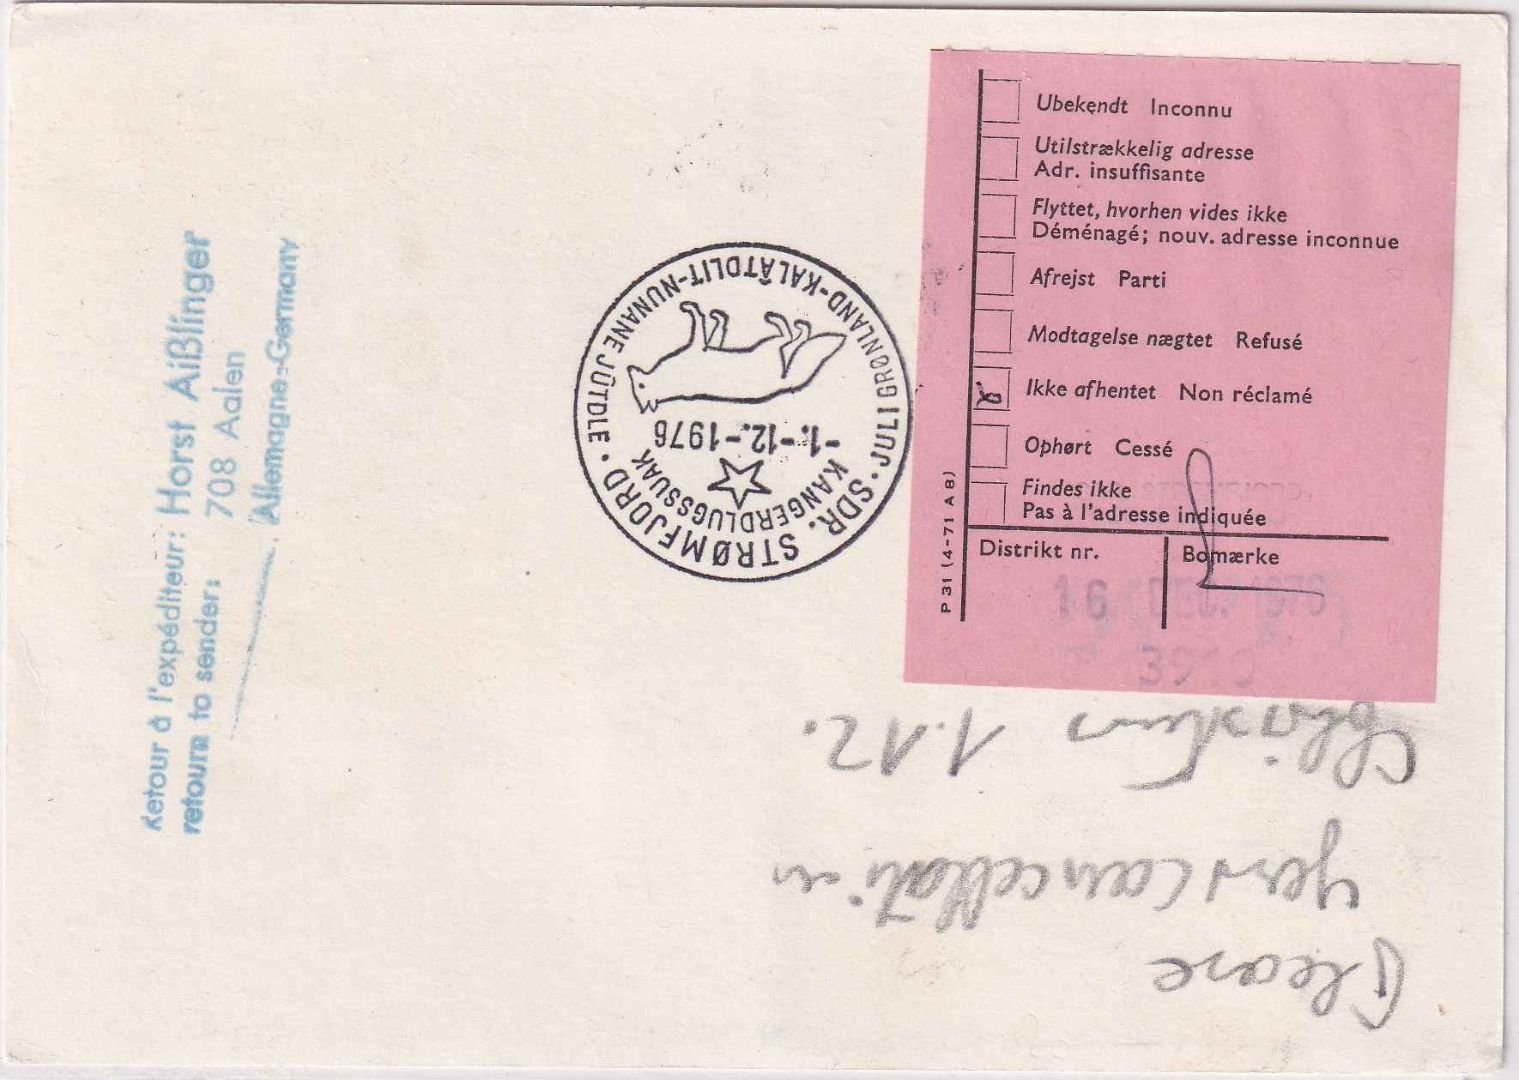 Ubekendt Inconnu
Utilstrækkelig adresse
Adr. insuffisante
Flyttet, hvorhen vides ikke
Déménagé; nouv. adresse inconnue
Afrejst Parti
Modtagelse nægtet Refusé
Ikke afhentet Non réclamé
Ophørt Cessé
Findes ikke
Pas à l'adresse indiquée
Distrikt nr. Bomærke
P 31 (4-71 A 8)
16 DEC. 1976
Retour à l'expéditeur: Horst Aißlinger
retourn to sender: 708 Aalen
Allemagne-Germany
SDR. STRØMFJORD
KANGERDLUGSSUAK
-1.-12.-1976
JULI GRØNLAND-KALÂTDLIT-NUNANE JÛTDLE
Please
your cancellation
1.12.